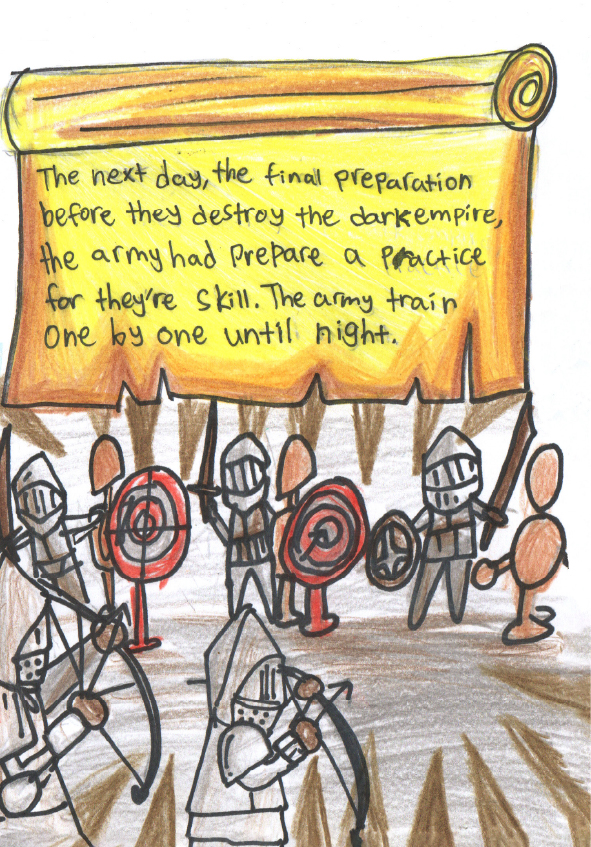 The next day, the final preparation
before they destroy the darkempire,
the army had prepare a practice
for they're skill. The army train
one by one until night.